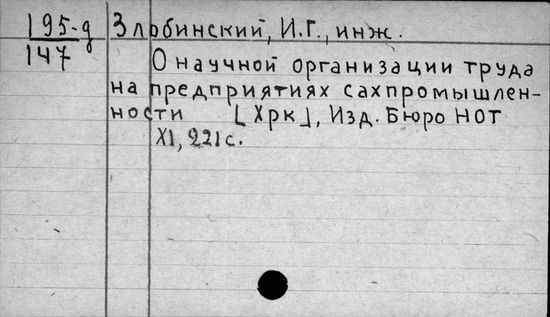 195-д Злобинский, И.Г., инж.
147
О научной организации труда
на предприятиях сахпромышлен-
ности [Хрк], Изд. Бюро НОТ
XI, 221с.